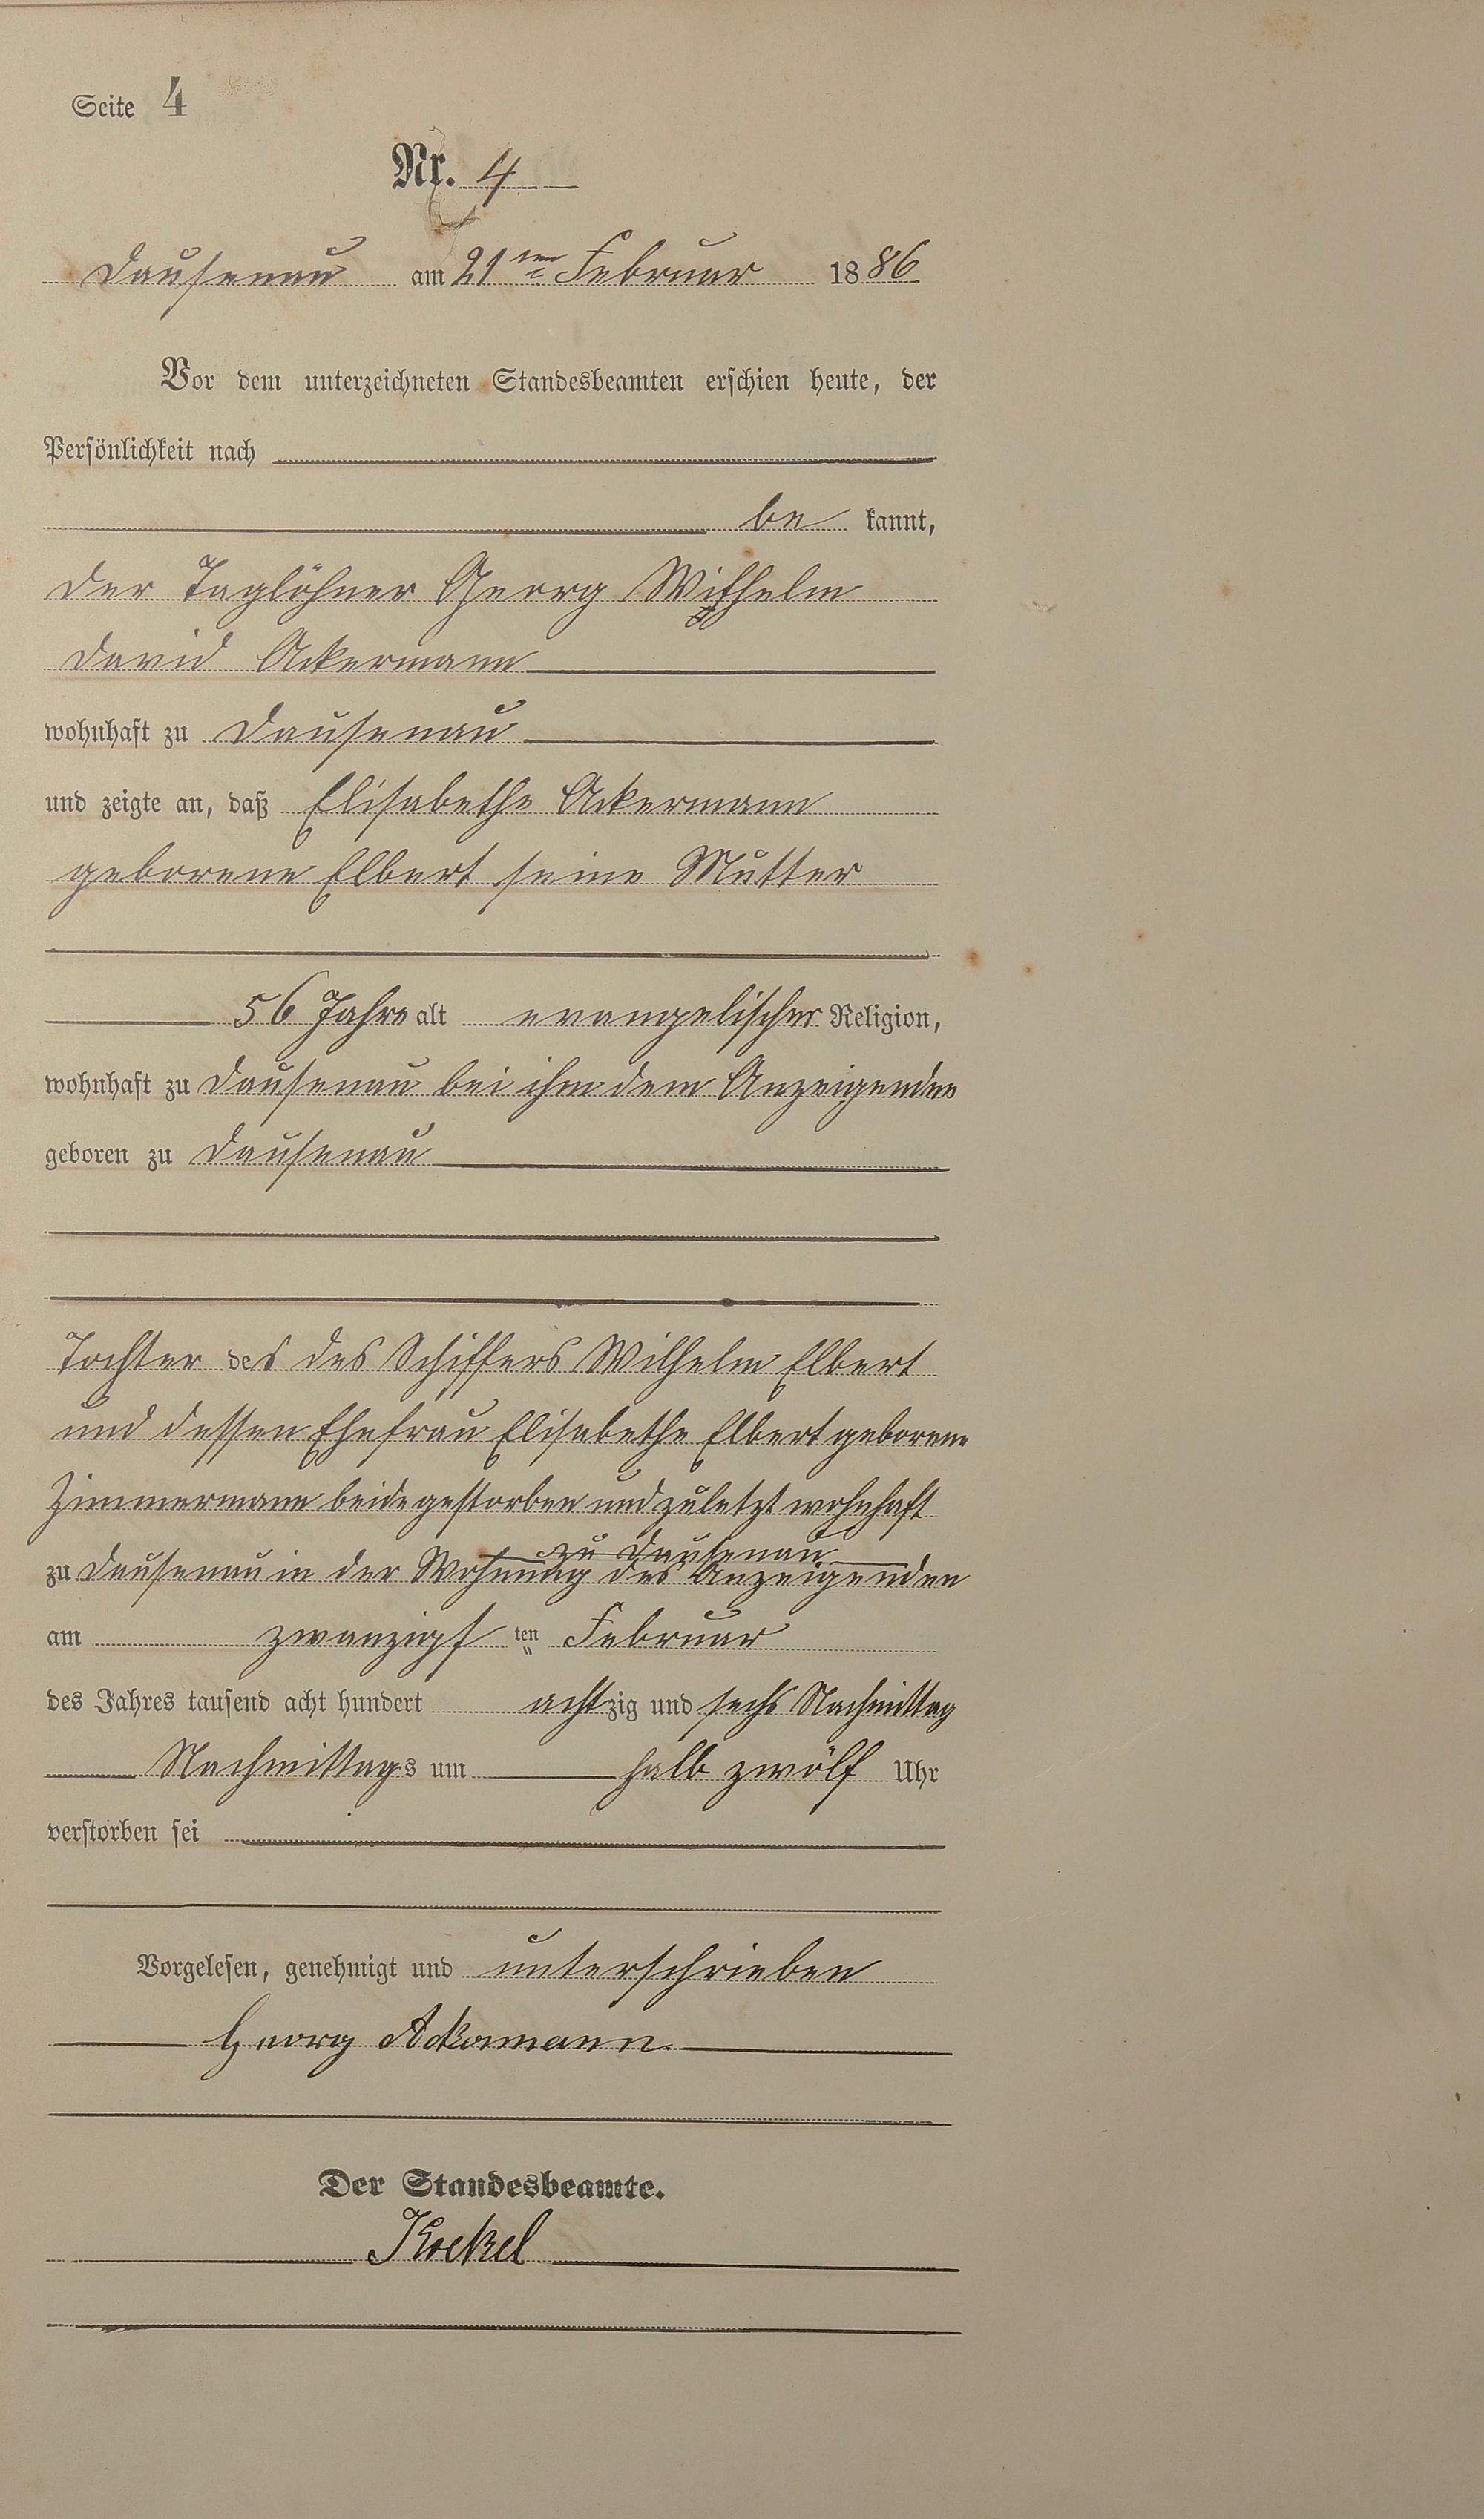 Seite 4
Nr. 4
Dausenau am 21ten Februar 1886
Vor dem unterzeichneten Standesbeamten erschien heute, der
Persönlichkeit nach
be kannt,
der Taglöhner Georg Wilhelm
David Ackermann
wohnhaft zu Dausenau
und zeigte an, daß Elisabethe Ackermann
geborene Elbert seine Mutter
56 Jahre alt evangelischer Religion,
wohnhaft zu Dausenau bei ihm dem Anzeigenden
geboren zu Dausenau
Tochter des des Schiffers Wilhelm Elbert
und dessen Ehefrau Elisabethe Elbert geborene
Zimmermann beide gestorben und zuletzt wohnhaft
zu Dausenau
zu Dausenau in der Wohnung des Anzeigenden
am zwanzigsten Februar
des Jahres tausend acht hundert achtzig und sechs Nachmittag
Nachmittags um halb zwölf Uhr
verstorben sei
Vorgelesen, genehmigt und unterschrieben
Georg Ackermann
Der Standesbeamte.